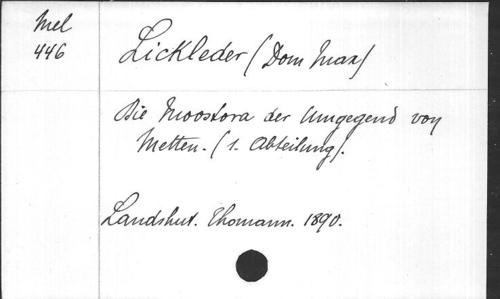 Mel
446
Lickleder (Dom Max)
Die Moosflora der Umgegend von
Metten. (1. Abteilung).
Landshut. Thomann. 1890.